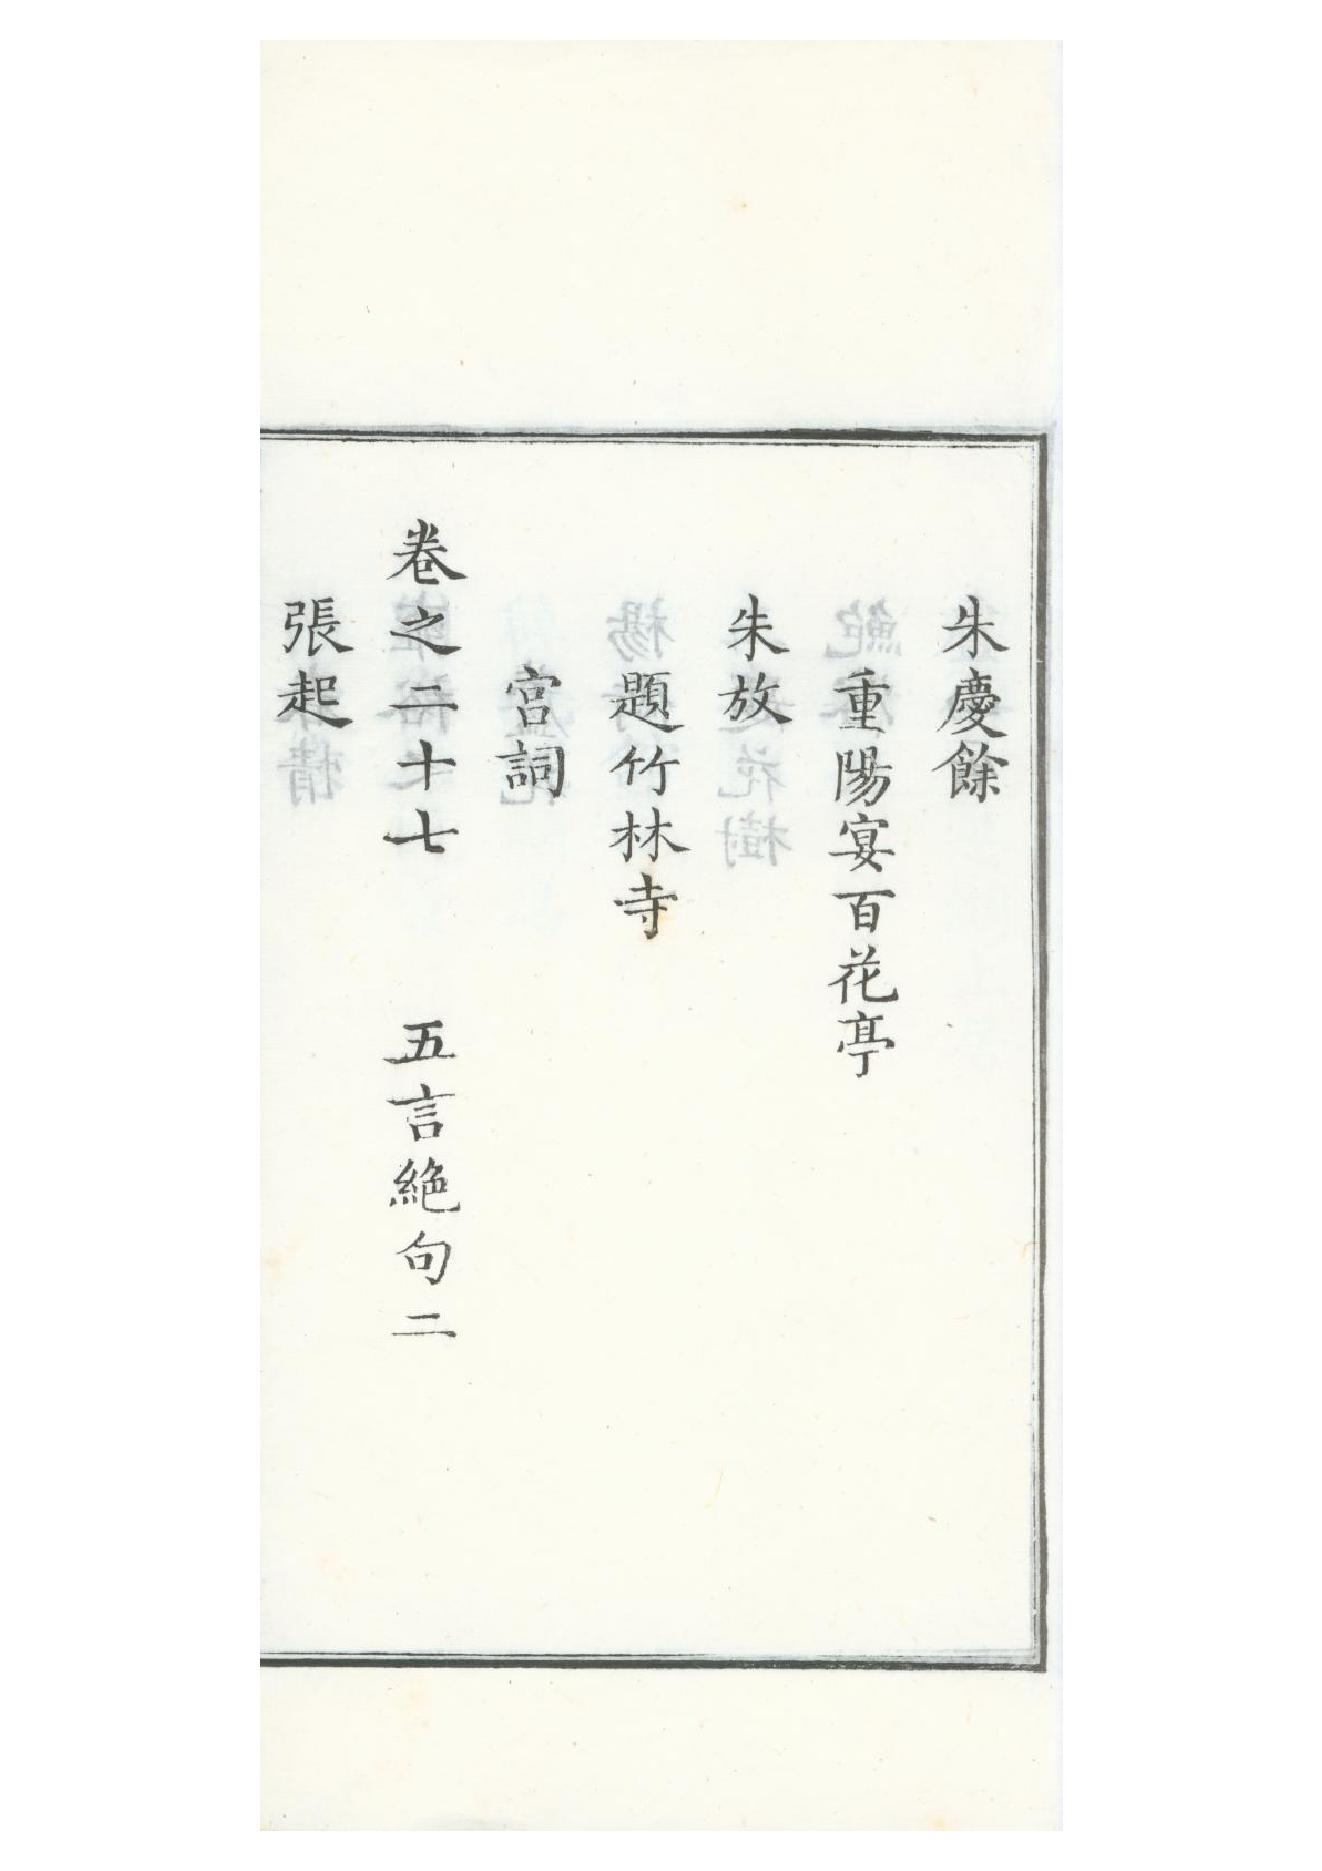 朱慶餘
重陽宴百花亭
朱放
題竹林寺
宮詞
卷之二十七　五言絕句二
張起